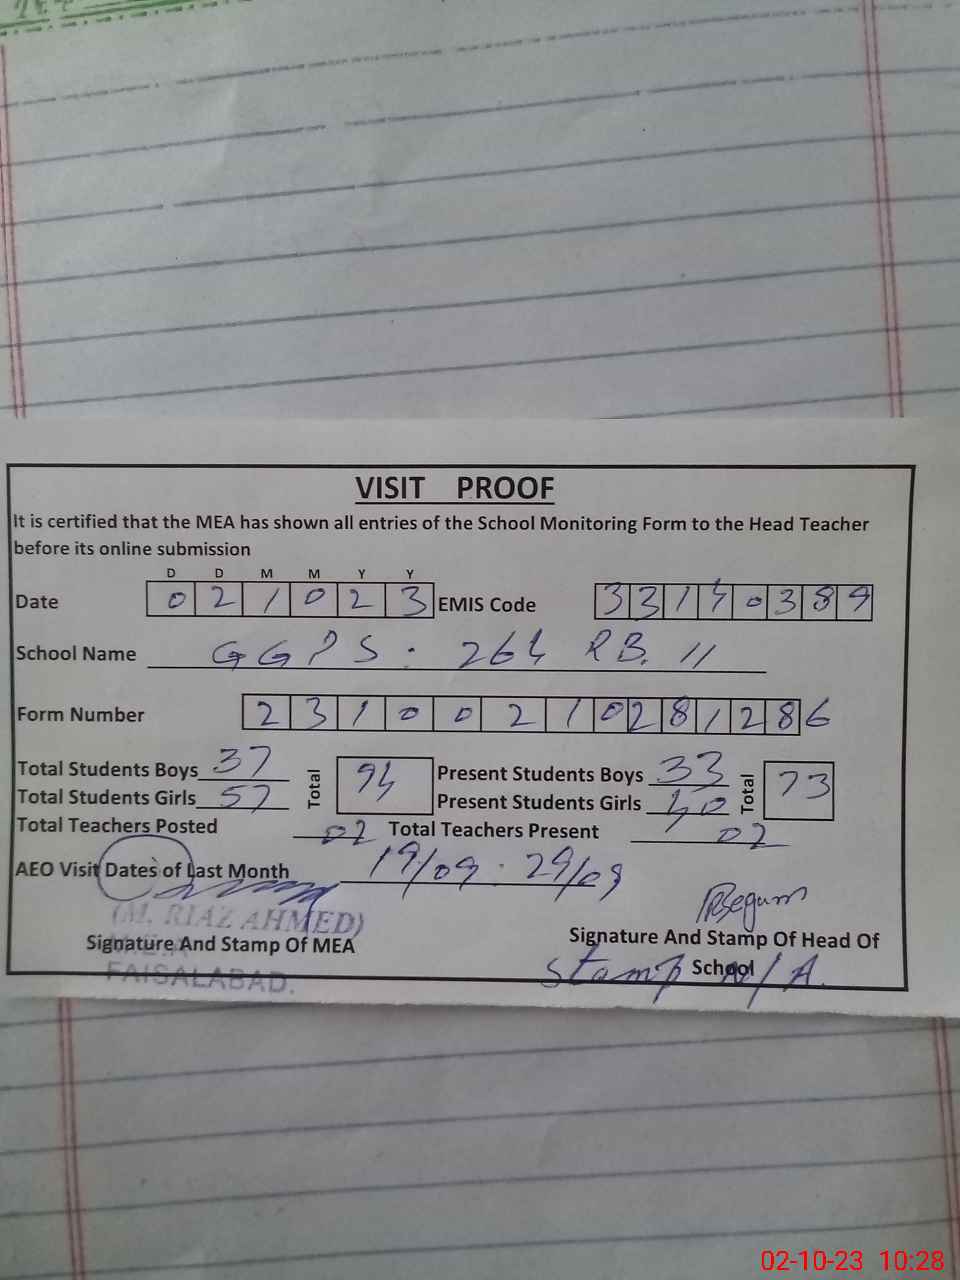 VISIT PROOF
It is certified that the MEA has shown all entries of the School Monitoring Form to the Head Teacher
before its online submission
D D M M Y Y
Date 0 2 1 0 2 3 EMIS Code 3 3 1 4 0 3 8 9
School Name GGPS. 264 RB. II
Form Number 2 3 1 0 0 2 1 0 2 8 1 2 8 6
Total Students Boys 37 Total 94 Present Students Boys 33 Total 73
Total Students Girls 57 Present Students Girls 40
Total Teachers Posted 02 Total Teachers Present 02
AEO Visit Dates of Last Month 19/09 . 29/09
(M. RIAZ AHMED)
Signature And Stamp Of MEA
FAISALABAD.
RBegum
Signature And Stamp Of Head Of
School
Stamp N/A.
02-10-23 10:28